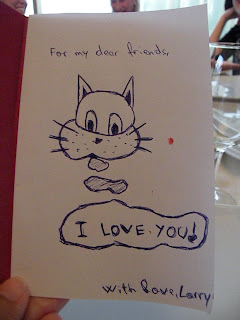 For my dear friends,
I LOVE YOU!
With Love, Larry